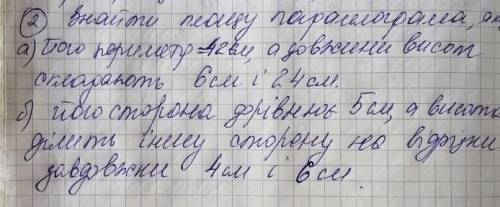 2 Знайти площу паралелограма, як
а) Його периметр 42см, а довжини висот
складають 6см і 2.4см.
б) його сторона дорівнює 5см, а висота
ділить іншу сторону на відрізки
завдовжки 4см і 6см.